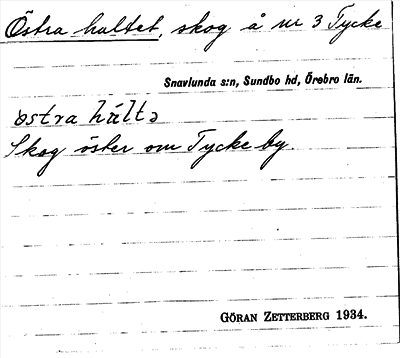 Östra hultet, skog å nr 3 Tycke
Snavlunda s:n, Sundbo hd, Örebro län.
östra húltə
Skog öster om Tycke by.
GÖRAN ZETTERBERG 1934.